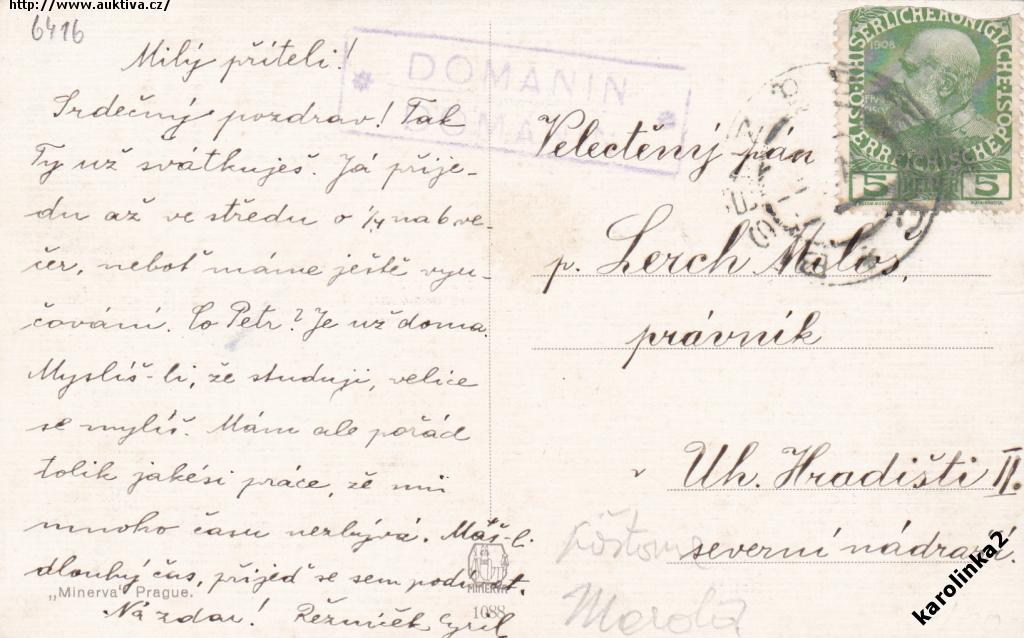 http://www.auktiva.cz/
6416
Milý příteli!
Srdečný pozdrav! Tak
Ty už svátkuješ. Já přije-
du až ve středu o 1/4 na 6 ve-
čer, neboť máme ještě vyu-
čování. Co Petr? Je už doma.
Myslíš-li, že studuji, velice
se mýlíš. Mám ale pořád
tolik jakési práce, že mi
mnoho času nezbývá. Máš-li
dlouhý čas, přijeď se sem podívat.
Na zdar! Řezníček Cyril
„Minerva" Prague.
MINERVA
1088
DOMANIN
KAISERLICHE KÖNIGLICHE
ÖSTERREICHISCHE POST
1908
5 HELLER 5
Velectěný pán
p. Lerch Miloš,
právník
v Uh. Hradišti II.
severní nádraží.
karolinka2